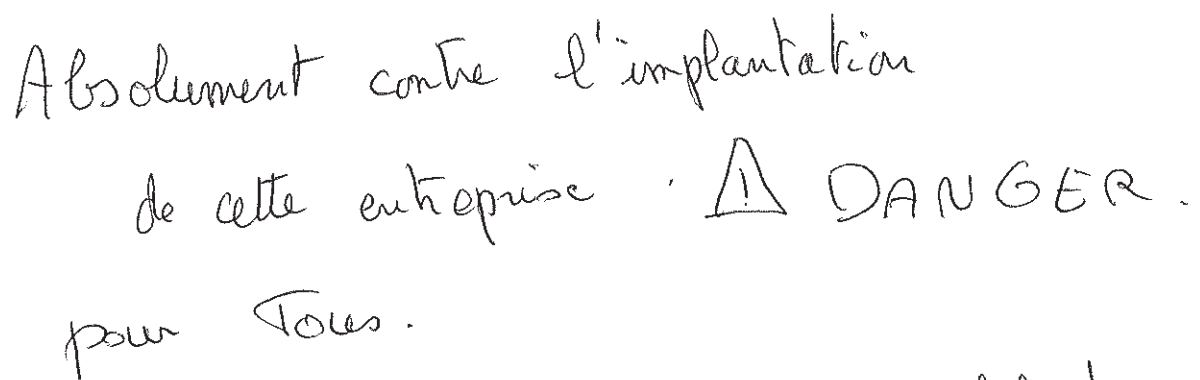 Absolument contre l'implantation
de cette entreprise. ⚠ DANGER.
pour Tous.